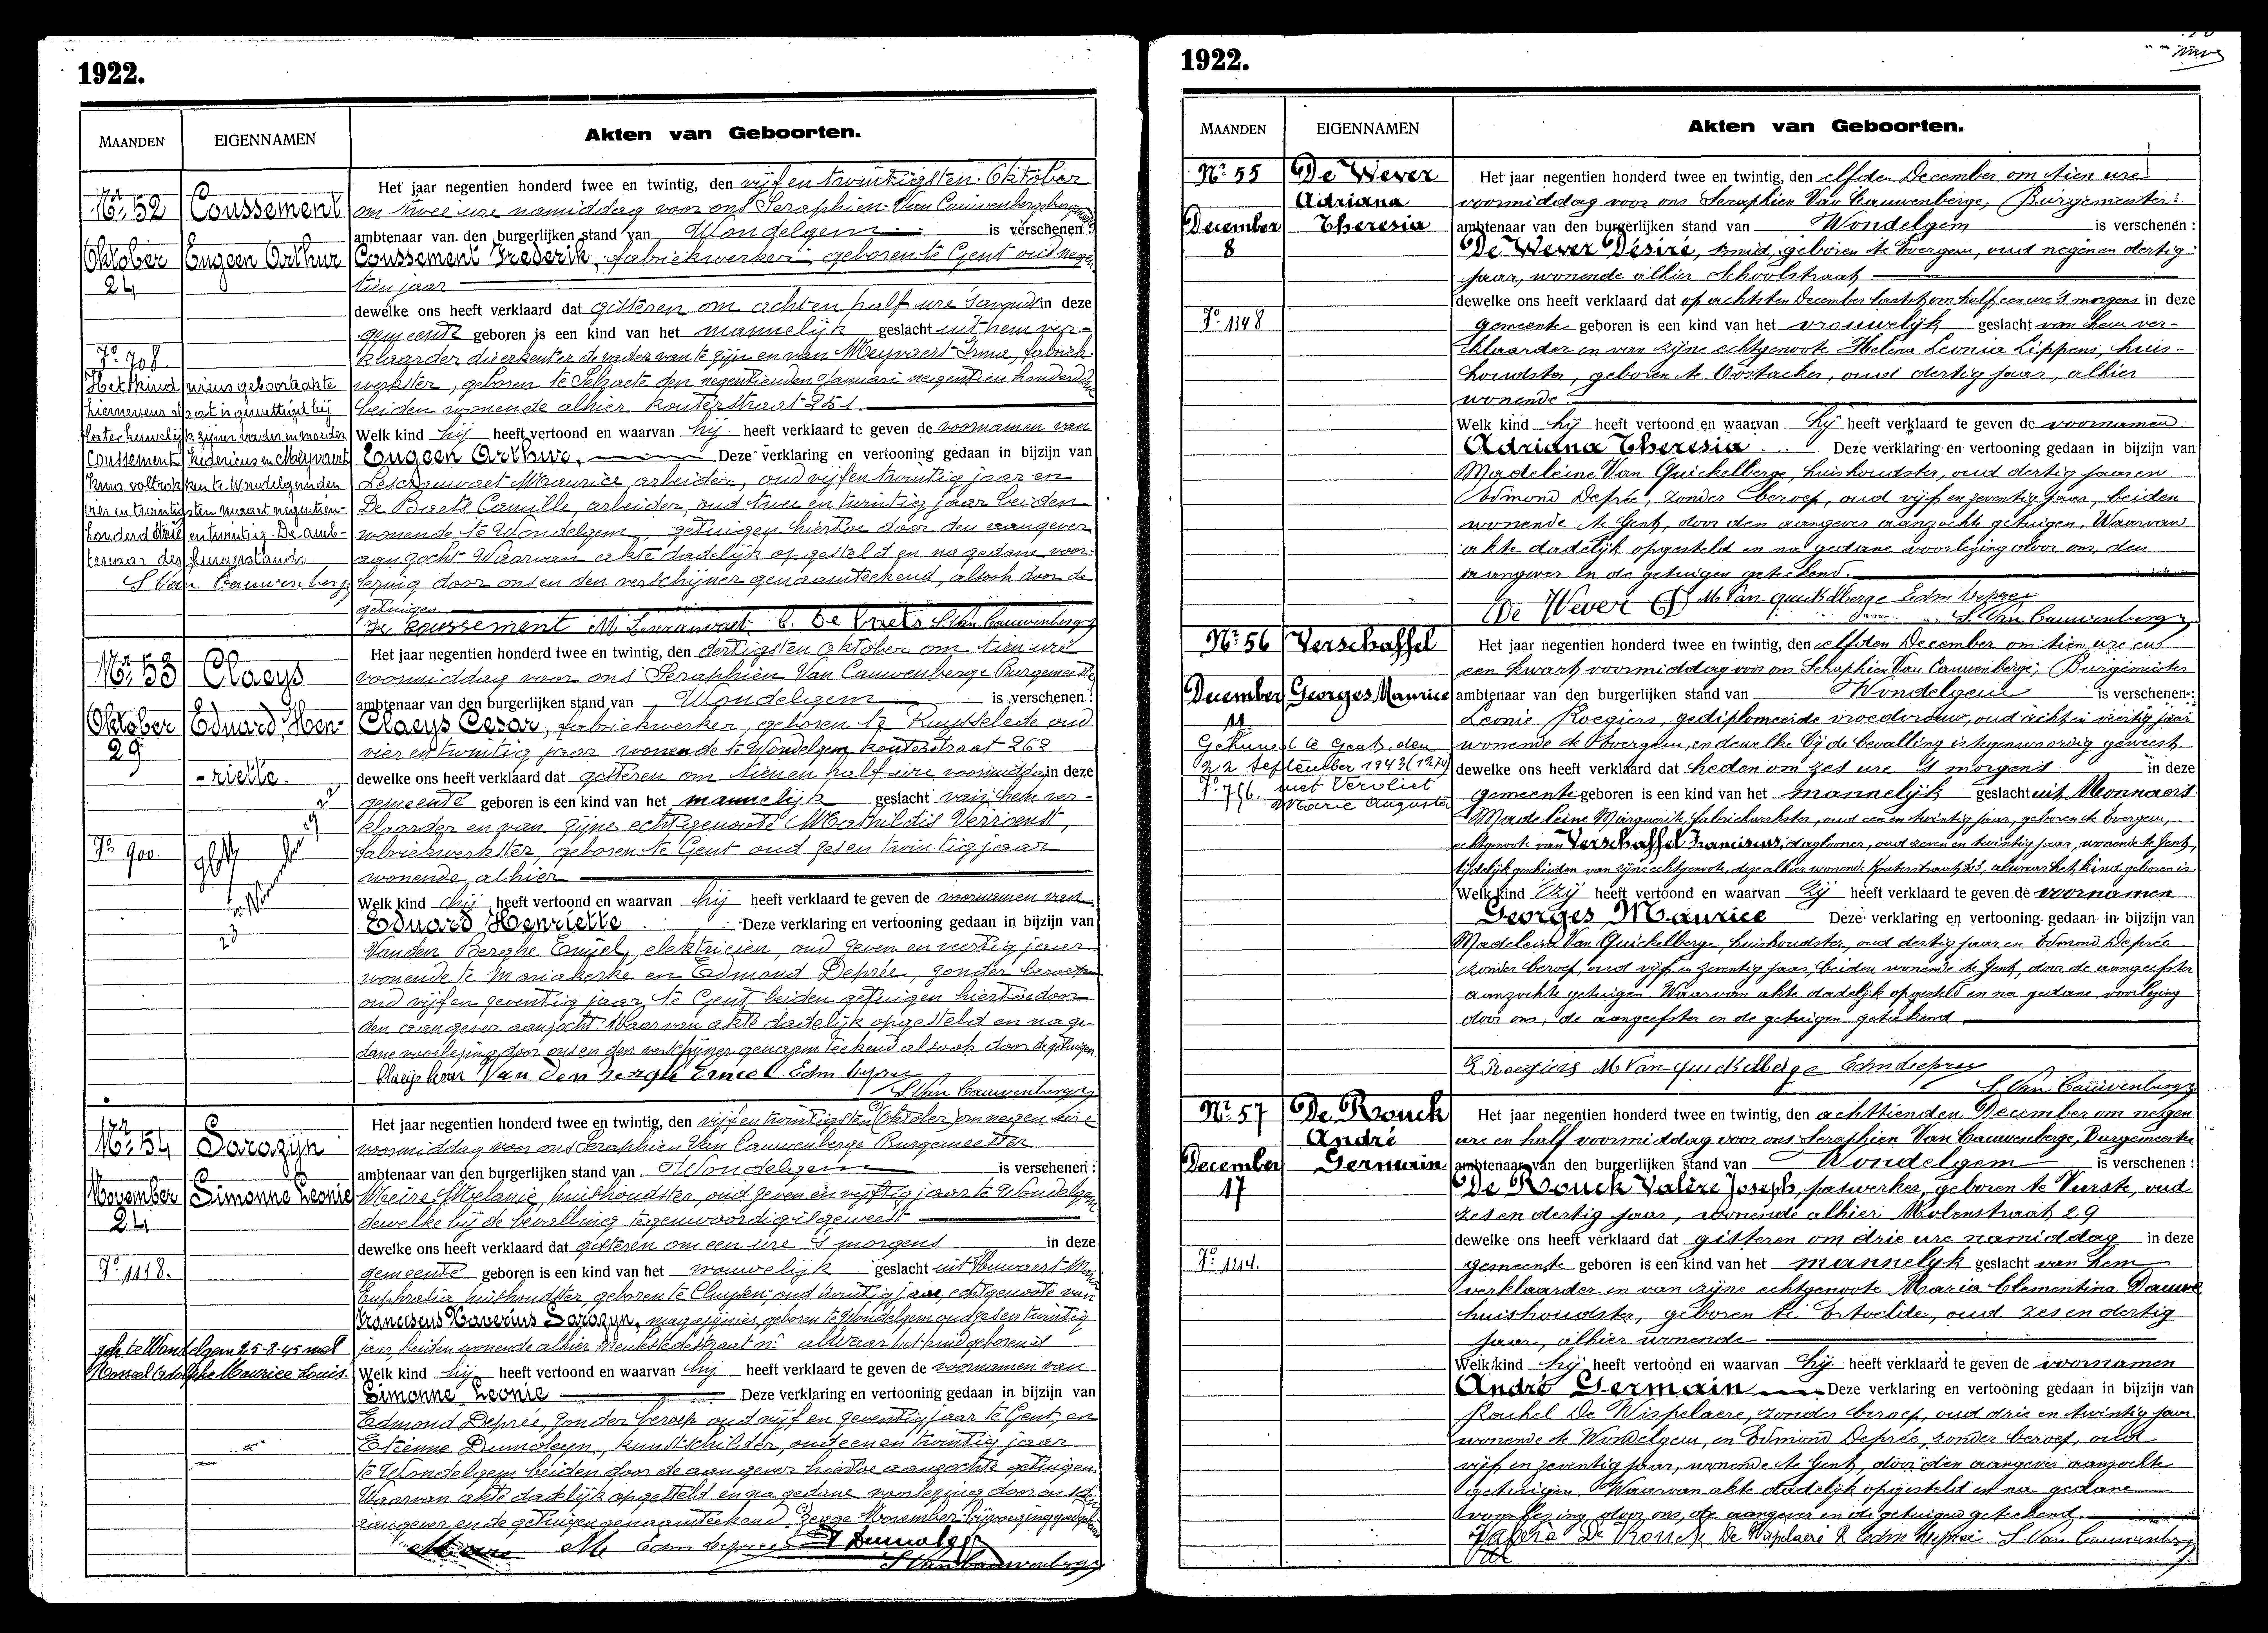 1922.
MAANDEN EIGENNAMEN Akten van Geboorten.
Nr. 52 Coussement
Oktober Eugeen Arthur
24
Fo. 798.
Het kind wiens geboorteakte
hiernevens staat is gewettigd bij
later huwelijk zijner vader en moeder
Coussement Fredericus en Meyvaert
Irma voltrokken te Wondelgem den
vier en twintigsten maart negentien
honderd drie en twintig. De amb-
tenaar des burgerstands.
S Van Cauwenberge
Het jaar negentien honderd twee en twintig, den vijf en twintigsten Oktober
om twee ure namiddag voor ons Seraphien Van Cauwenberge burgemeester
ambtenaar van den burgerlijken stand van Wondelgem is verschenen:
Coussement Frederik, fabriekwerker geboren te Gent oud negen
tien jaar
dewelke ons heeft verklaard dat gisteren om acht en half ure 's avonds in deze
gemeente geboren is een kind van het mannelijk geslacht uit hem ver-
klaarder die erkent er de vader van te zijn en van Meyvaert Irma, fabriek
werkster, geboren te Selzaete den negentienden Januari negentien honderd
beiden wonende alhier kouterstraat 251.
Welk kind hij heeft vertoond en waarvan hij heeft verklaard te geven de voornamen van
Eugeen Arthur. Deze verklaring en vertooning gedaan in bijzijn van
Maurice arbeider, oud vijf en twintig jaar en
De Baets Camille, arbeider, oud twee en twintig jaar beiden
wonende te Wondelgem getuigen hiertoe door den aangever
aangezocht. Waarvan akte dadelijk opgesteld en na gedane voor-
lezing door ons en den verschijner genaamteekend, alsook door de
getuigen
Coussement M C. De Baets S Van Cauwenberge
Nr. 53 Claeys
Oktober Eduard Hen-
29 -riette.
Fo. 900.
Het jaar negentien honderd twee en twintig, den dertigsten Oktober om tien ure
voormiddag voor ons Seraphien Van Cauwenberge Burgemeester
ambtenaar van den burgerlijken stand van Wondelgem is verschenen:
Claeys Cesar, fabriekwerker, geboren te Ruysselede oud
vier en twintig jaar wonende te Wondelgem kouterstraat 262
dewelke ons heeft verklaard dat gisteren om tien en half ure voormiddag in deze
gemeente geboren is een kind van het mannelijk geslacht van hem ver-
klaarder en van zijne echtgenoote Mathildis Verriest,
fabriekwerkster, geboren te Gent oud zes en twintig jaar
wonende alhier
Welk kind hij heeft vertoond en waarvan hij heeft verklaard te geven de voornamen van
Eduard Henriette Deze verklaring en vertooning gedaan in bijzijn van
Vanden Berghe Emiel, elektricien, oud zeven en veertig jaar
wonende te Mariakerke en Edmond Deprée, zonder beroep
oud vijf en zeventig jaar te Gent, beiden getuigen hiertoe door
den aangever aanzocht. Waarvan akte dadelijk opgesteld en na ge-
dane voorlezing door ons en den verschijner genaamteekend alsook door de getuigen.
Claeys Cesar Van den berghe Emiel Edm Deprée
S Van Cauwenberge
Nr. 54 Sarazijn
November Simonne Leonie
24
Fo. 1158.
geh. te Wondelgem 25-8-45 met
Rossel Adolphe Maurice Louis.
Het jaar negentien honderd twee en twintig, den vijf en twintigsten Oktober om negen ure
voormiddag voor ons Seraphien Van Cauwenberge Burgemeester
ambtenaar van den burgerlijken stand van Wondelgem is verschenen:
Meire Melanie, huishoudster, oud zeven en vijftig jaar te Wondelgem
dewelke bij de bevalling tegenwoordig is geweest
dewelke ons heeft verklaard dat gisteren om een ure 's morgens in deze
gemeente geboren is een kind van het vrouwelijk geslacht uit
Euphrasia huishoudster geboren te Cluysen, oud twintig jaar, echtgenoote van
Franciscus Xaverius Sarazijn, magazijnier, geboren te Wondelgem oud zes en twintig
jaar, beiden wonende alhier alwaar het kind geboren is
Welk kind hij heeft vertoond en waarvan hij heeft verklaard te geven de voornamen van
Simonne Leonie Deze verklaring en vertooning gedaan in bijzijn van
Edmond Deprée, zonder beroep oud vijf en zeventig jaar te Gent, en
Etienne Dumoleyn, kunstschilder, oud een en twintig jaar
te Wondelgem beiden door de aangever hiertoe aangezochte getuigen.
Waarvan akte dadelijk opgesteld en na gedane voorlezing door ons den
aangever en de getuigen genaamteekend. Zegge November bijvoeging goedgekeurd
Meire Me Edm Deprée E Dumoleyn
S Van Cauwenberge
1922.
MAANDEN EIGENNAMEN Akten van Geboorten.
Nr. 55 De Wever
Adriana
December Theresia
8
Fo. 1348
Het jaar negentien honderd twee en twintig, den elfden December om tien ure
voormiddag voor ons Seraphien Van Cauwenberge, Burgemeester:
ambtenaar van den burgerlijken stand van Wondelgem is verschenen:
De Wever Désiré, smid, geboren te Evergem, oud negen en dertig
jaar, wonende alhier Schoolstraat
dewelke ons heeft verklaard dat op achtsten December laatst, om half een ure 's morgens in deze
gemeente geboren is een kind van het vrouwelijk geslacht van hem ver-
klaarder en van zijne echtgenoote Helena Leonia Lippens, huis-
houdster, geboren te Oostacker, oud dertig jaar, alhier
wonende.
Welk kind hij heeft vertoond en waarvan hij heeft verklaard te geven de voornamen
Adriana Theresia Deze verklaring en vertooning gedaan in bijzijn van
Madeleine Van Quickelberge, huishoudster, oud dertig jaar en
Edmond Deprée, zonder beroep, oud vijf en zeventig jaar, beiden
wonende te Gent, door den aangever aanzochte getuigen. Waarvan
akte dadelijk opgesteld en na gedane voorlezing door ons, den
aangever en de getuigen geteekend.
De Wever M Van quickelberge Edm Deprée
S. Van Cauwenberge
Nr. 56 Verschaffel
December Georges Maurice
11
Gehuwd te Gent, den
22 September 1943 (1274)
met Vervliet
Marie Augusta
Fo. 766.
Het jaar negentien honderd twee en twintig, den elfden December om tien ure en
een kwart voormiddag voor ons Seraphien Van Cauwenberge, Burgemeester
ambtenaar van den burgerlijken stand van Wondelgem is verschenen:
Leonie Roegiers, gediplomeerde vroedvrouw, oud acht en veertig jaar
wonende te Evergem, en dewelke bij de bevalling is tegenwoordig geweest
dewelke ons heeft verklaard dat heden om zes ure 's morgens in deze
gemeente geboren is een kind van het mannelijk geslacht uit Monnaert
Madeleine Marguerite, fabriekwerkster, oud een en twintig jaar, geboren te Evergem,
echtgenoote van Verschaffel Franciscus, daglooner, oud zeven en twintig jaar, wonende te Gent,
tijdelijk gescheiden van zijne echtgenoote, deze alhier wonende Kouterstraat, alwaar het kind geboren is.
Welk kind Zij heeft vertoond en waarvan Zij heeft verklaard te geven de voornamen
Georges Maurice Deze verklaring en vertooning gedaan in bijzijn van
Madeleine Van Quickelberge, huishoudster, oud dertig jaar en Edmond Deprée
zonder beroep, oud vijf en zeventig jaar, beiden wonende te Gent, door de aangeefster
aanzochte getuigen. Waarvan akte dadelijk opgesteld en na gedane voorlezing
door ons, de aangeefster en de getuigen geteekend.
L Roegiers M Van quickelberge Edm Deprée
S. Van Cauwenberge
Nr. 57 De Rouck
André
December Germain
17
Fo. 1214.
Het jaar negentien honderd twee en twintig, den achttienden December om negen
ure en half voormiddag voor ons Seraphien Van Cauwenberge, Burgemeester
ambtenaar van den burgerlijken stand van Wondelgem is verschenen:
De Rouck Valère Joseph, paswerker, geboren te Vurste, oud
zes en dertig jaar, wonende alhier Molenstraat 29
dewelke ons heeft verklaard dat gisteren om drie ure namiddag in deze
gemeente geboren is een kind van het mannelyk geslacht van hem
verklaarder en van zijne echtgenoote Maria Clementina Dauwe
huishoudster, geboren te Ertvelde, oud zes en dertig
jaar, alhier wonende
Welk kind hij heeft vertoond en waarvan hij heeft verklaard te geven de voornamen
André Germain Deze verklaring en vertooning gedaan in bijzijn van
Rachel De Wispelaere, zonder beroep, oud drie en twintig jaar
wonende te Wondelgem, en Edmond Deprée, zonder beroep, oud
vijf en zeventig jaar, wonende te Gent, door den aangever aanzochte
getuigen. Waarvan akte dadelijk opgesteld en na gedane
voorlezing door ons, de aangever en de getuigen geteekend.
Valère De Rouck De Wispelaere R Edm Deprée S. Van Cauwenberge